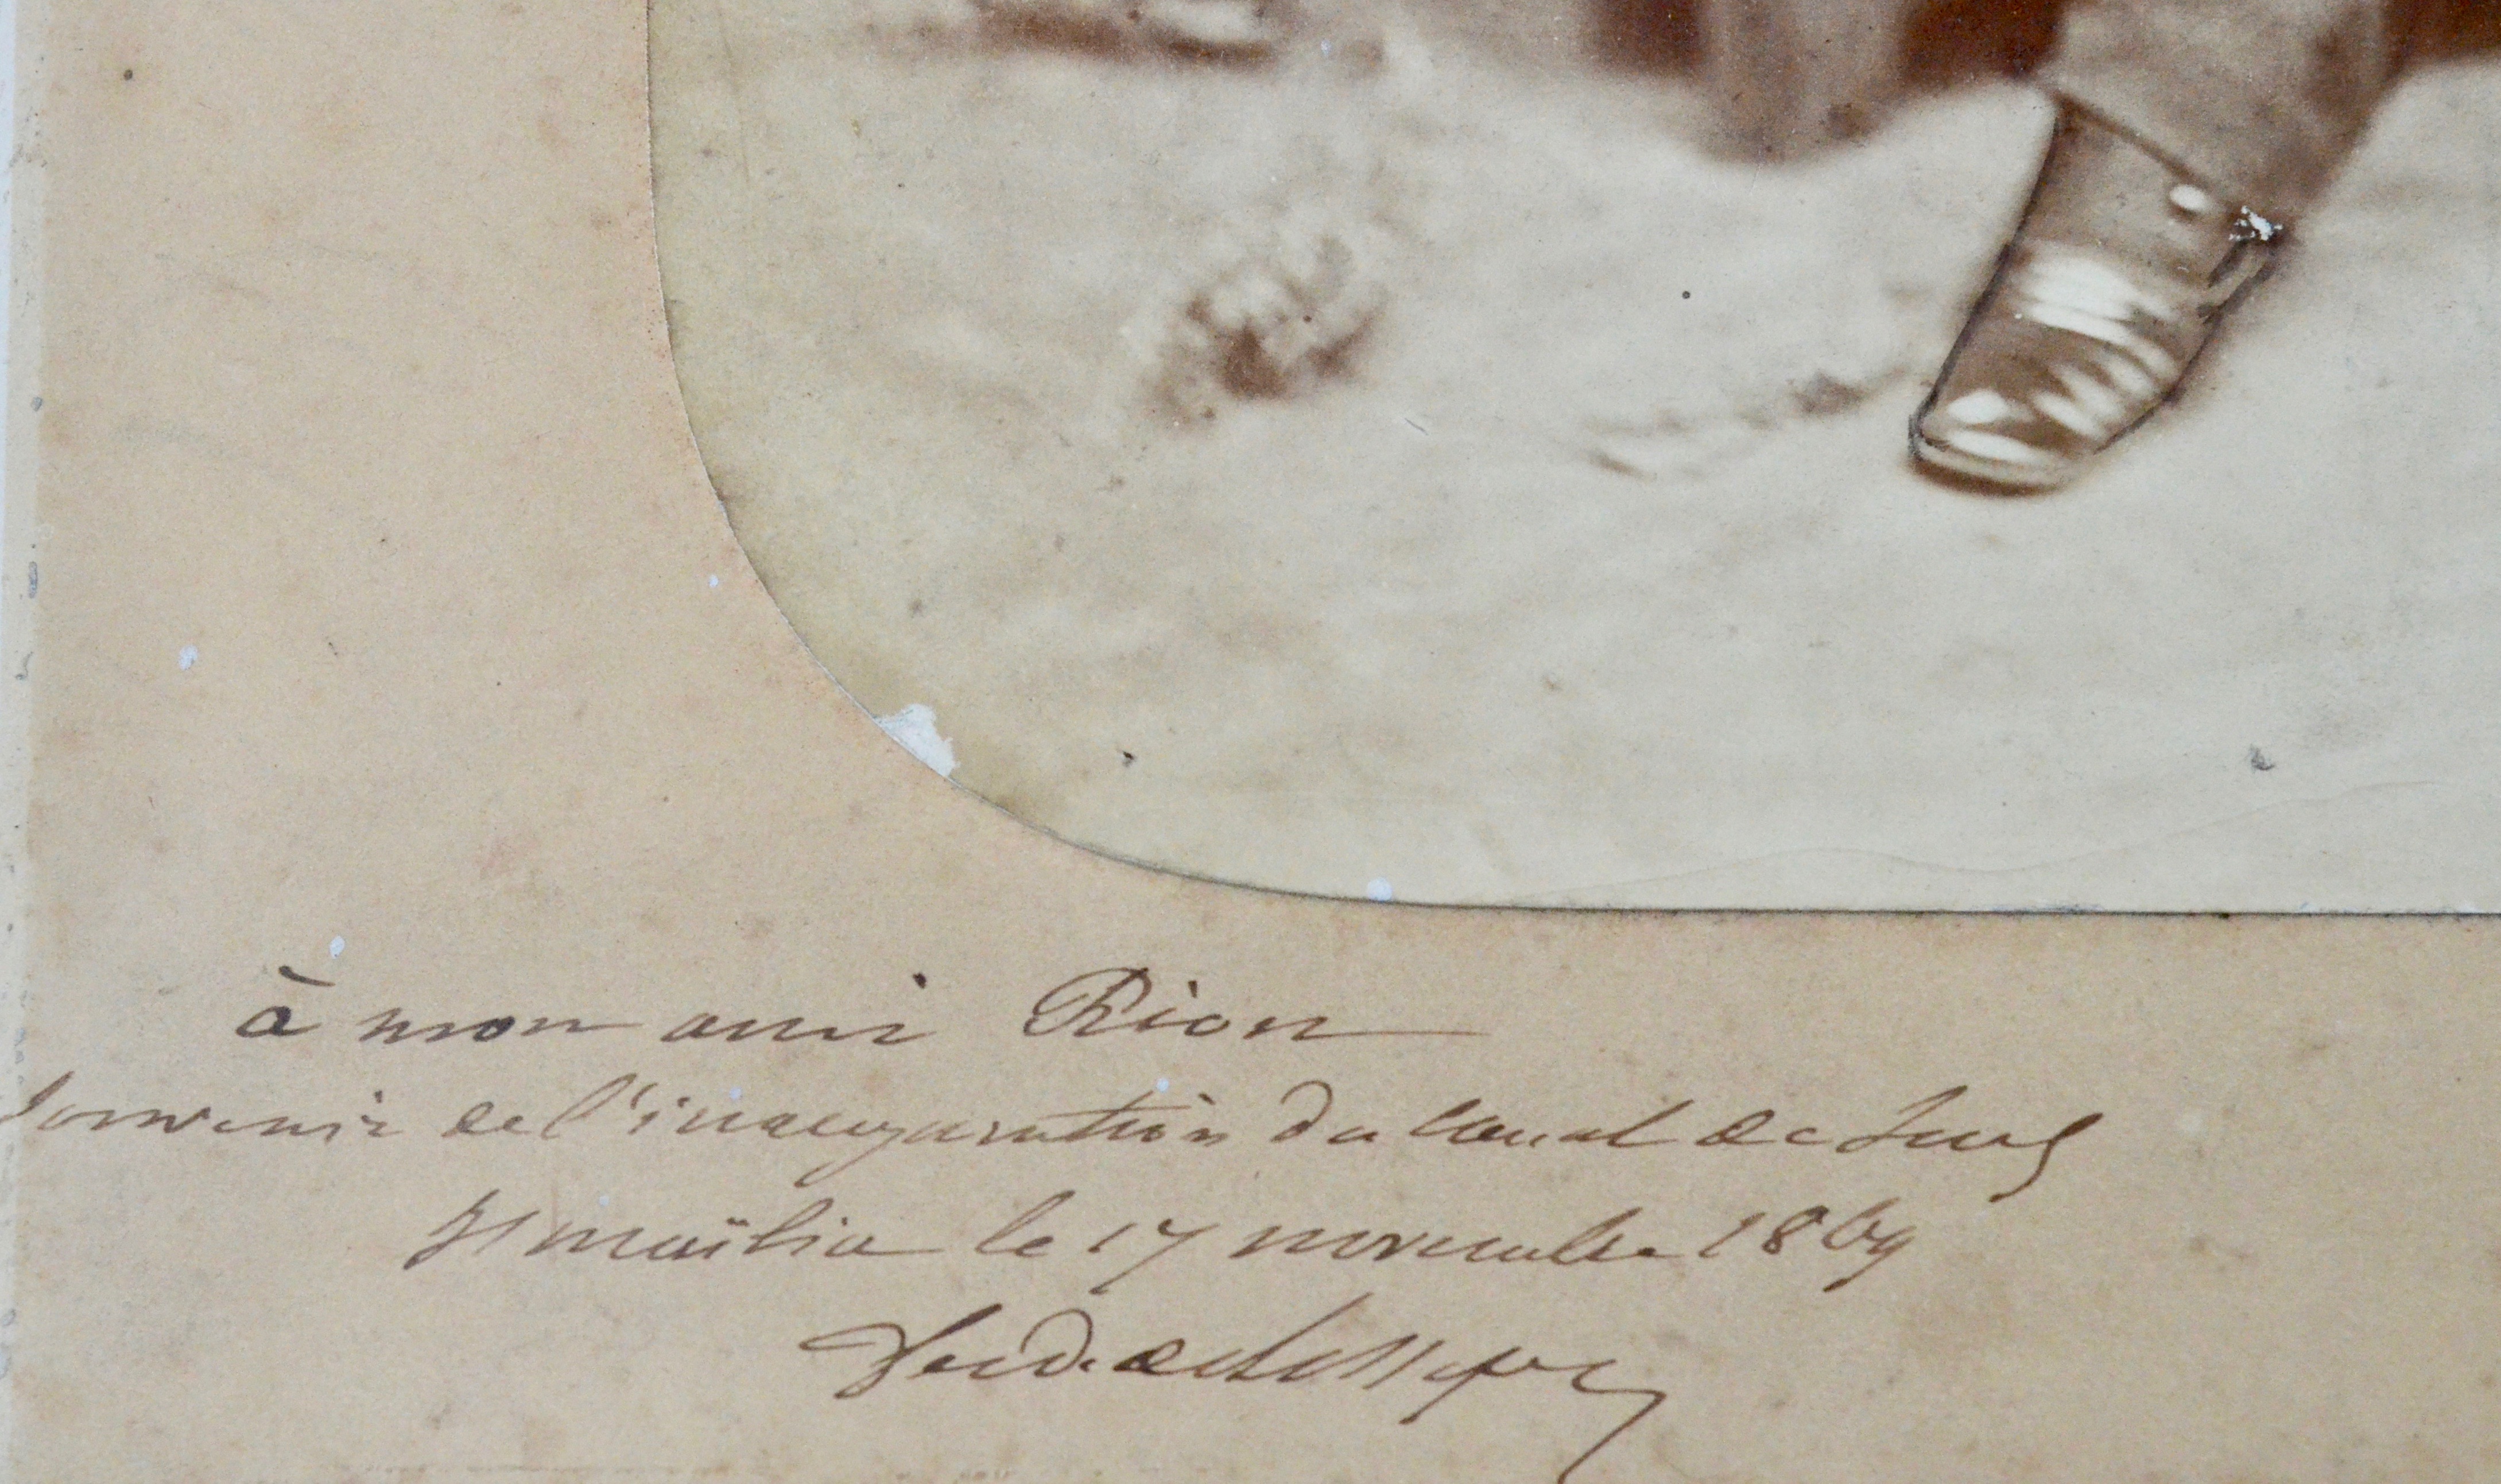 à mon ami Riou
Souvenir de l'inauguration du Canal de Suez
Ismaïlia le 17 novembre 1869
Ferd. de Lesseps